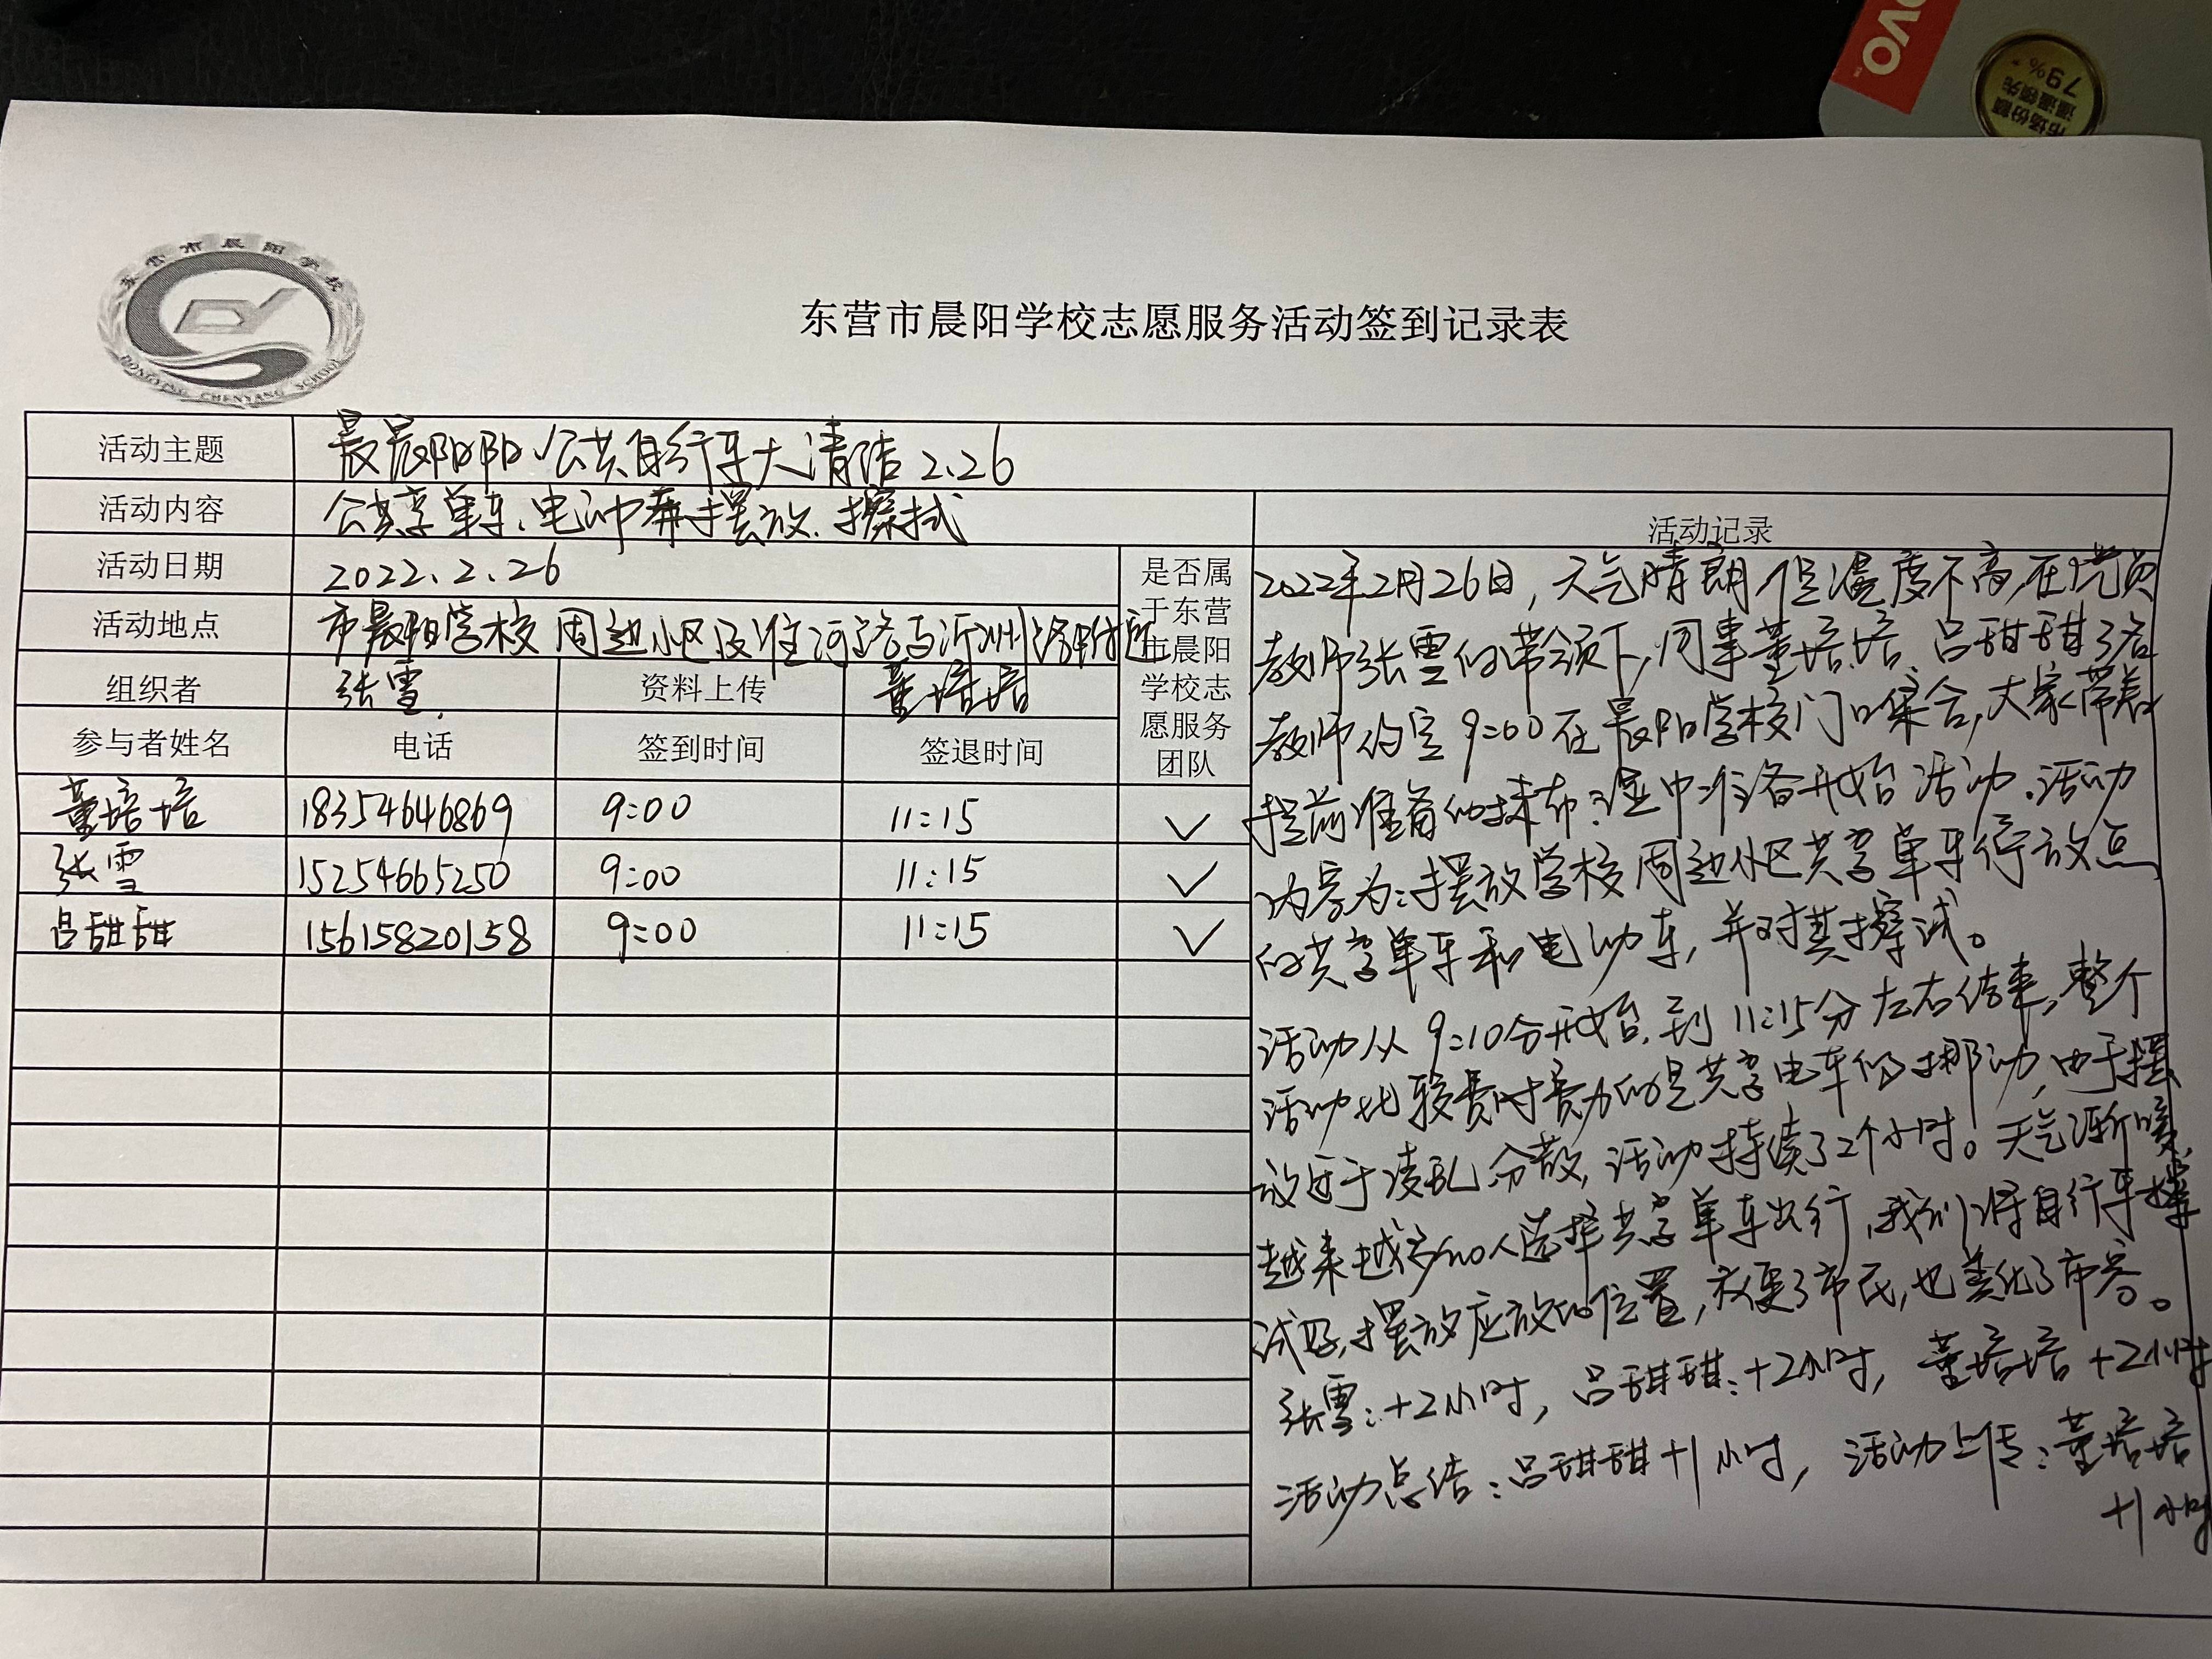 OVO
市场份额
遥遥领先
79%*
东营市晨阳学校
DONGYING CHENYANG SCHOOL
东营市晨阳学校志愿服务活动签到记录表
活动主题 晨晨阳阳、公共自行车大清洁 2.26
活动内容 公共享单车、电动车摆放、擦拭
活动日期 2022.2.26
活动地点 市晨阳学校周边小区及淮河路与沂州路附近
组织者 张雪 资料上传 董培培
参与者姓名 电话 签到时间 签退时间
是否属
于东营
市晨阳
学校志
愿服务
团队
董培培 18354646869 9:00 11:15 ✓
张雪 15254665250 9:00 11:15 ✓
吕甜甜 15615820158 9:00 11:15 ✓
活动记录
2022年2月26日,天气晴朗,但温度不高,在党员
教师张雪的带领下,同事董培培、吕甜甜3名
教师约定9:00在晨阳学校门口集合,大家带着
提前准备的抹布、准备开始活动.活动
内容为:摆放学校周边小区共享单车停放点
的共享单车和电动车,并对其擦试。
活动从9:10分开始,到11:15分左右结束,整个
活动比较费时费力的是共享电车的挪动,由于摆
放过于凌乱、分散,活动持续了2个小时。天气渐暖,
越来越多的人选择共享单车出行,我们将自行车擦
试好,摆放应放的位置,方便了市民,也美化了市容。
张雪:+2小时,吕甜甜:+2小时,董培培+2小时
活动总结:吕甜甜+1小时,活动上传:董培培
+1小时